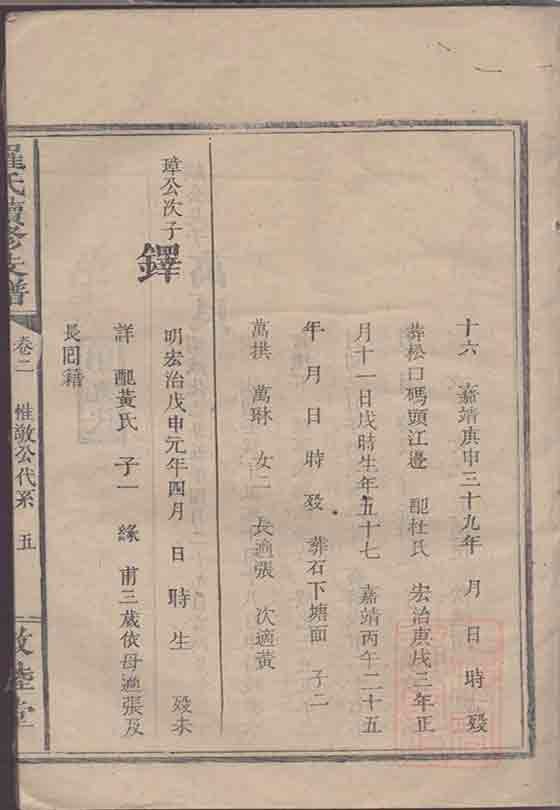 十六 嘉靖庚申三十九年 月 日 時 歿
葬松口碼頭江邊 配杜氏 宏治庚戌三年正
月十一日戌時生年五十七 嘉靖丙午二十五
年 月 日 時 歿 葬石下塘面 子二
萬拱 萬琳 女二 長適張 次適黃
璋公次子
鐸
明宏治戊申元年四月 日 時 生 歿未
詳 配黃氏 子一 緣 甫三歲依母適張及
長囘籍
羅氏續修支譜
卷二 惟敬公代系 五
敦睦堂